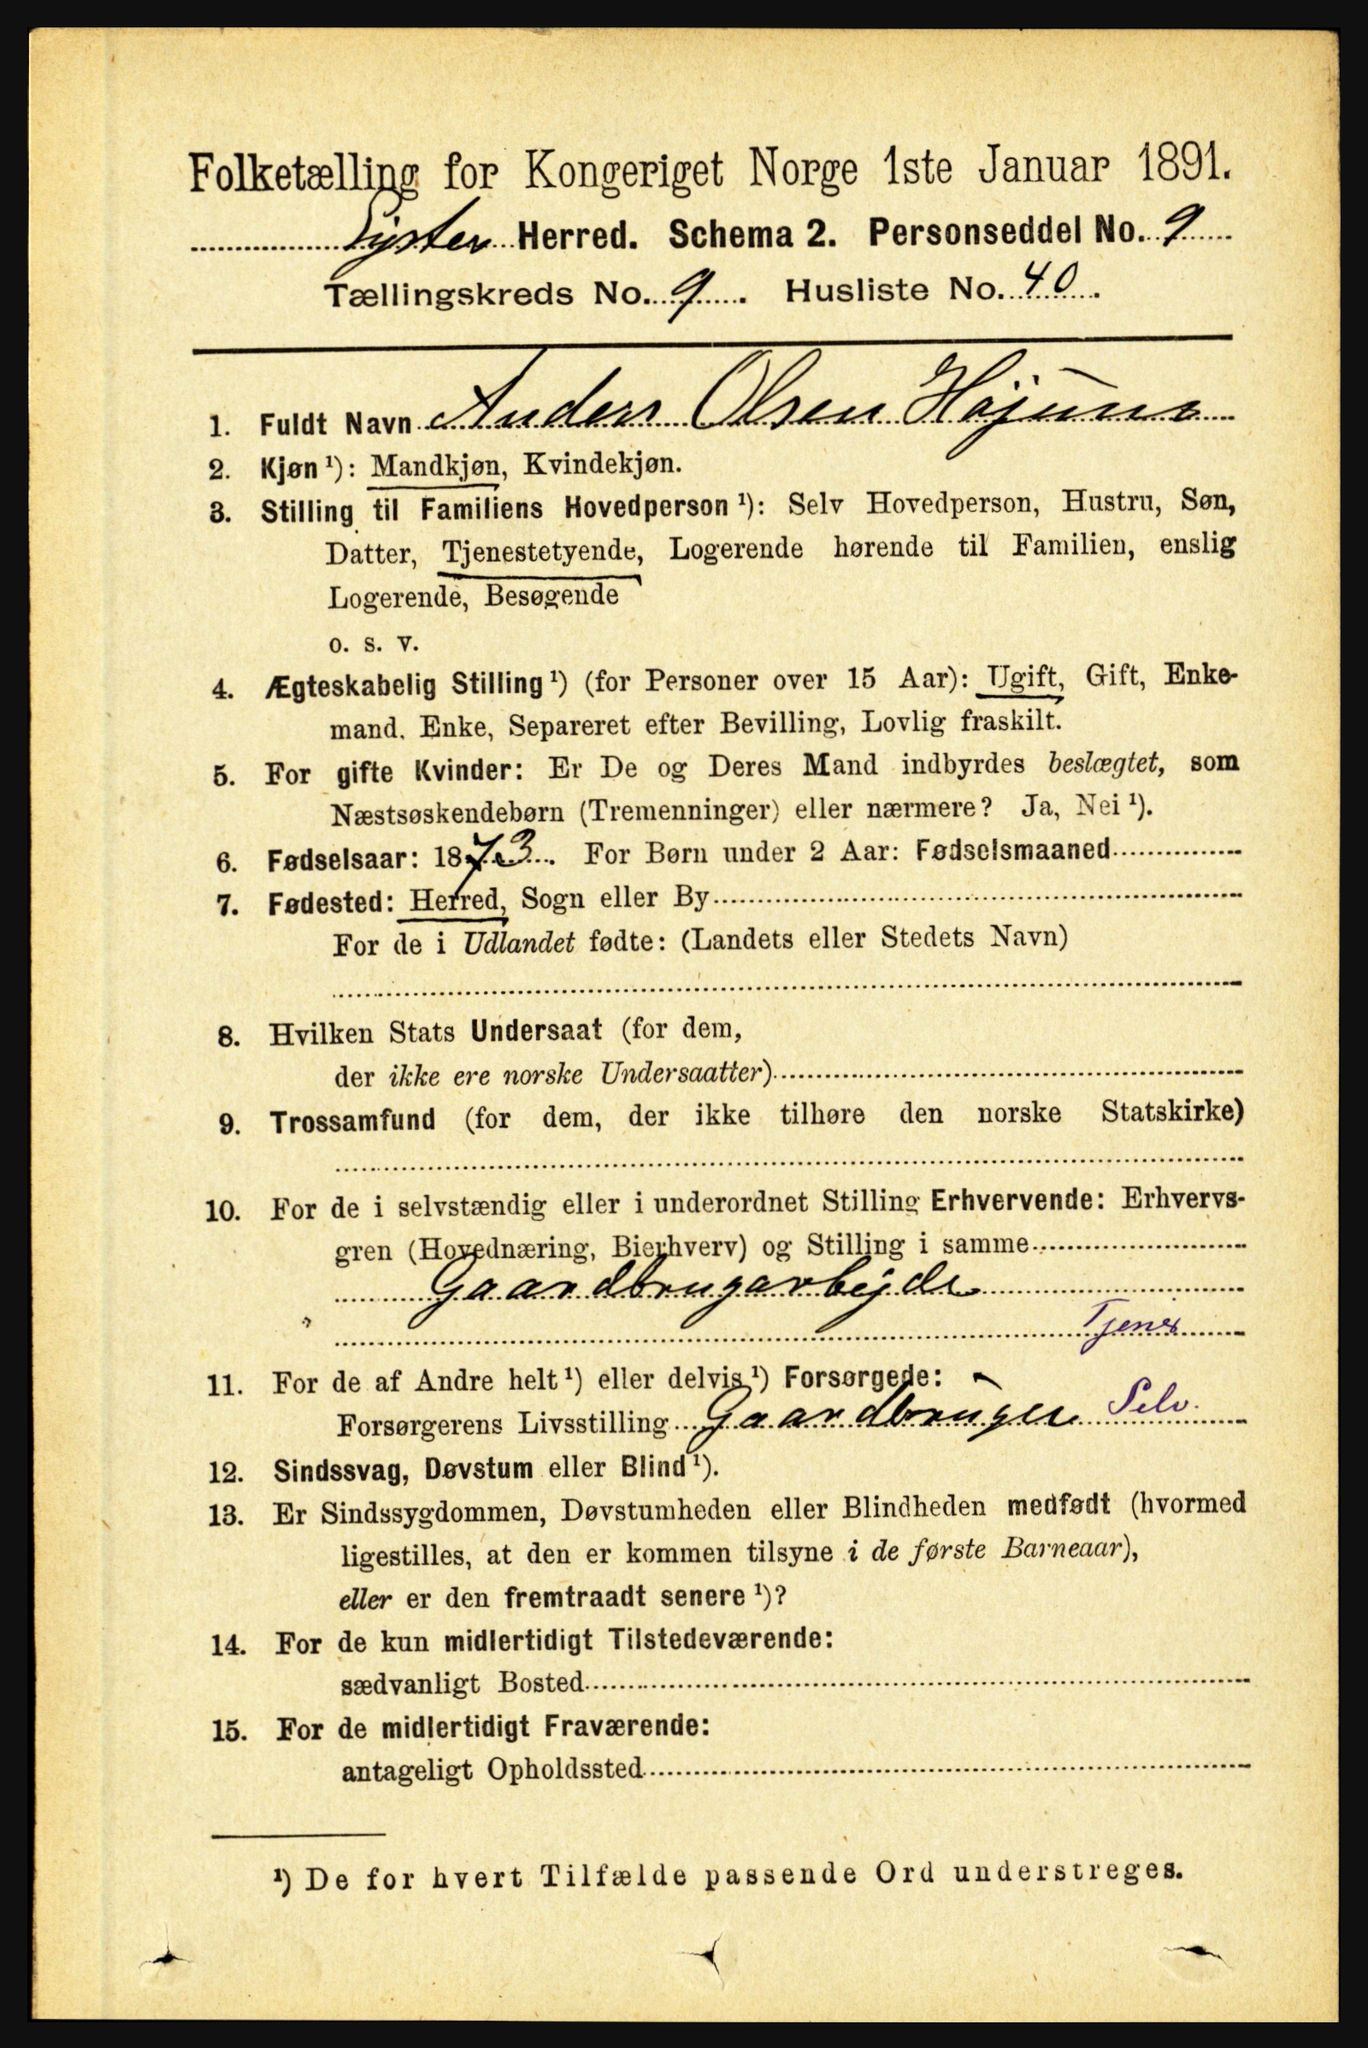 Folketælling for Kongeriget Norge 1ste Januar 1891.
Lyster Herred. Schema 2. Personseddel No. 9
Tællingskreds No. 9. Husliste No. 40.
1. Fuldt Navn Anders Olsen
2. Kjøn ¹): Mandkjøn, Kvindekjøn.
3. Stilling til Familiens Hovedperson ¹): Selv Hovedperson, Hustru, Søn,
Datter, Tjenestetyende, Logerende hørende til Familien, enslig
Logerende, Besøgende
o. s. v.
4. Ægteskabelig Stilling ¹) (for Personer over 15 Aar): Ugift, Gift, Enke-
mand, Enke, Separeret efter Bevilling, Lovlig fraskilt.
5. For gifte Kvinder: Er De og Deres Mand indbyrdes beslægtet, som
Næstsøskendebørn (Tremenninger) eller nærmere? Ja, Nei ¹).
6. Fødselsaar: 1873. For Børn under 2 Aar: Fødselsmaaned
7. Fødested: Herred, Sogn eller By
For de i Udlandet fødte: (Landets eller Stedets Navn)
8. Hvilken Stats Undersaat (for dem,
der ikke ere norske Undersaatter)
9. Trossamfund (for dem, der ikke tilhøre den norske Statskirke)
10. For de i selvstændig eller i underordnet Stilling Erhvervende: Erhvervs-
gren (Hovednæring, Bierhverv) og Stilling i samme
Gaardbrugarbejde
Tjener
11. For de af Andre helt ¹) eller delvis ¹) Forsørgede:
Forsørgerens Livsstilling Gaardbruger Selv.
12. Sindssvag, Døvstum eller Blind ¹).
13. Er Sindssygdommen, Døvstumheden eller Blindheden medfødt (hvormed
ligestilles, at den er kommen tilsyne i de første Barneaar),
eller er den fremtraadt senere ¹)?
14. For de kun midlertidigt Tilstedeværende:
sædvanligt Bosted
15. For de midlertidigt Fraværende:
antageligt Opholdssted
¹) De for hvert Tilfælde passende Ord understreges.